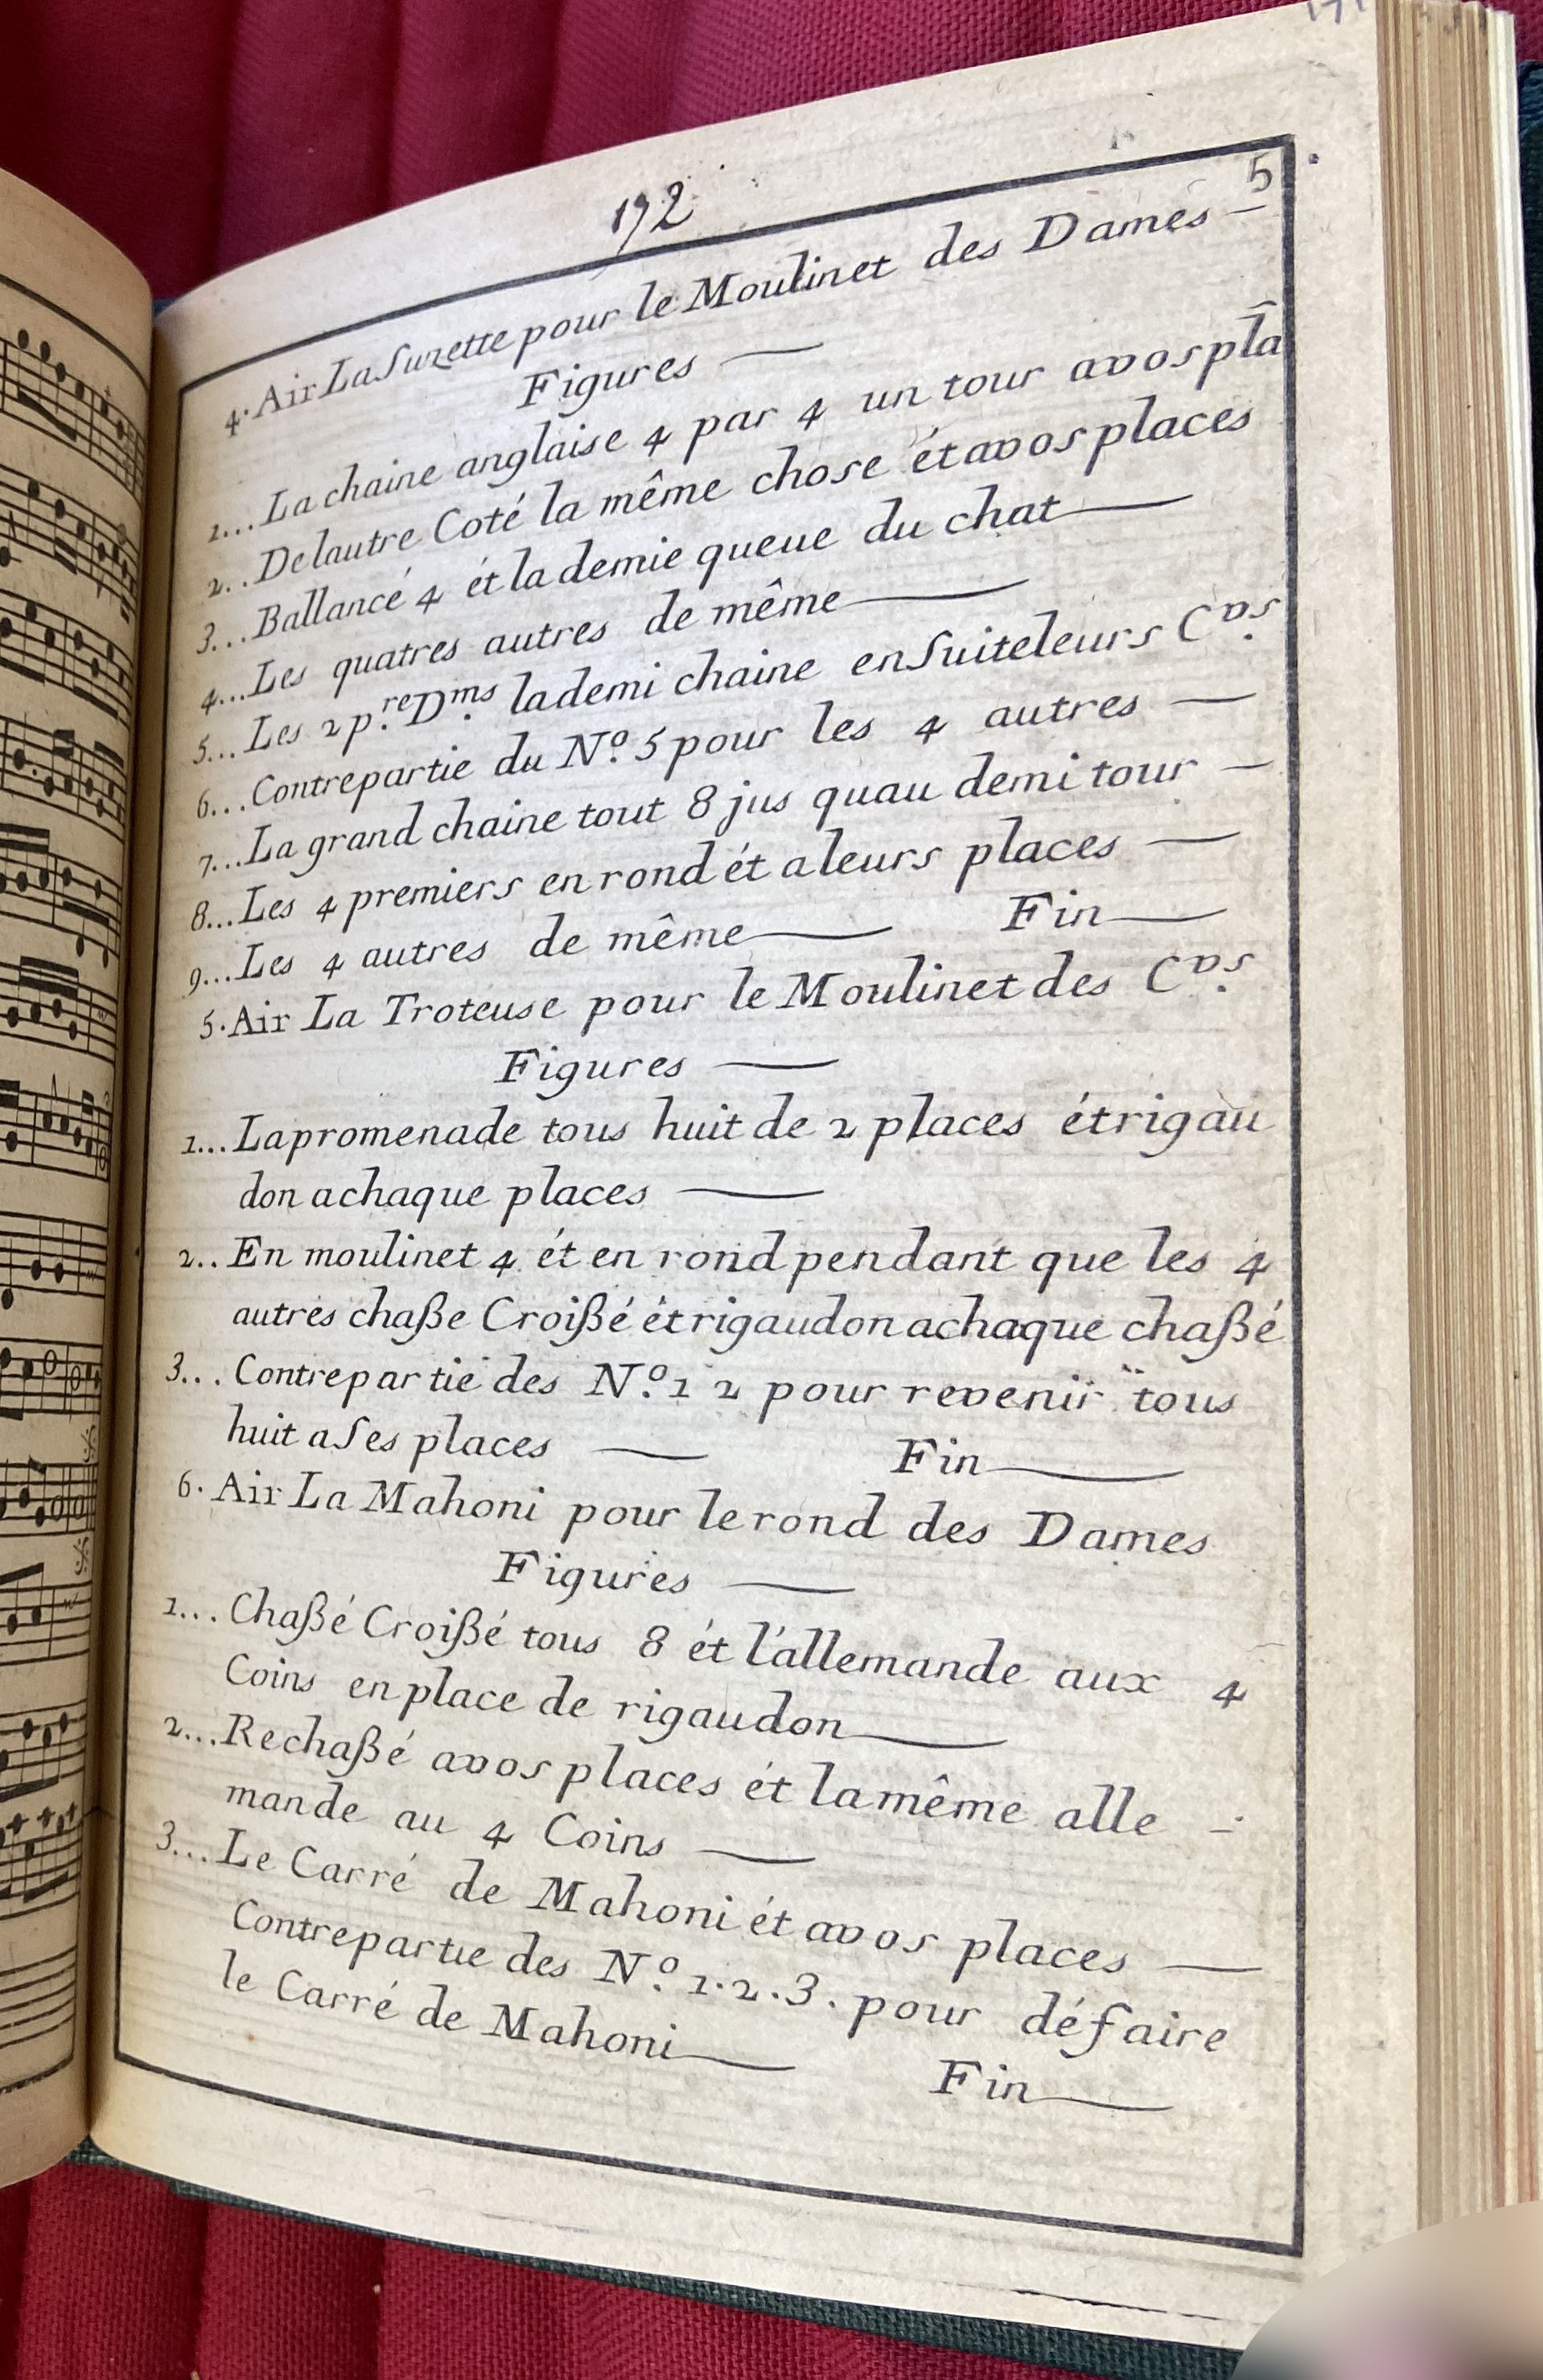 192
5
4. Air La Suzette pour le Moulinet des Dames —
Figures —
1... La chaine anglaise 4 par 4 un tour avos pla
2.. De lautre Coté la même chose ét avos places
3... Ballancé 4 ét la demie queue du chat —
4... Les quatres autres de même —
5... Les 2 p.re D.ms la demi chaine en Suite leurs C.vs
6... Contrepartie du N.o 5 pour les 4 autres —
7... La grand chaine tout 8 jus quau demi tour —
8... Les 4 premiers en rond ét a leurs places —
9... Les 4 autres de même — Fin —
5. Air La Troteuse pour le Moulinet des C.vs
Figures —
1... La promenade tous huit de 2 places ét rigau
don a chaque places —
2.. En moulinet 4 ét en rond pendant que les 4
autres chaße Croißé ét rigaudon a chaque chaßé
3... Contrepartie des N.o 1 2 pour revenir tous
huit a Ses places — Fin —
6. Air La Mahoni pour le rond des Dames
Figures —
1... Chaßé Croißé tous 8 ét l'allemande aux 4
Coins en place de rigaudon —
2... Rechaßé avos places ét la même alle -
mande au 4 Coins —
3... Le Carré de Mahoni ét avos places —
Contrepartie des N.o 1. 2. 3. pour défaire
le Carré de Mahoni — Fin —